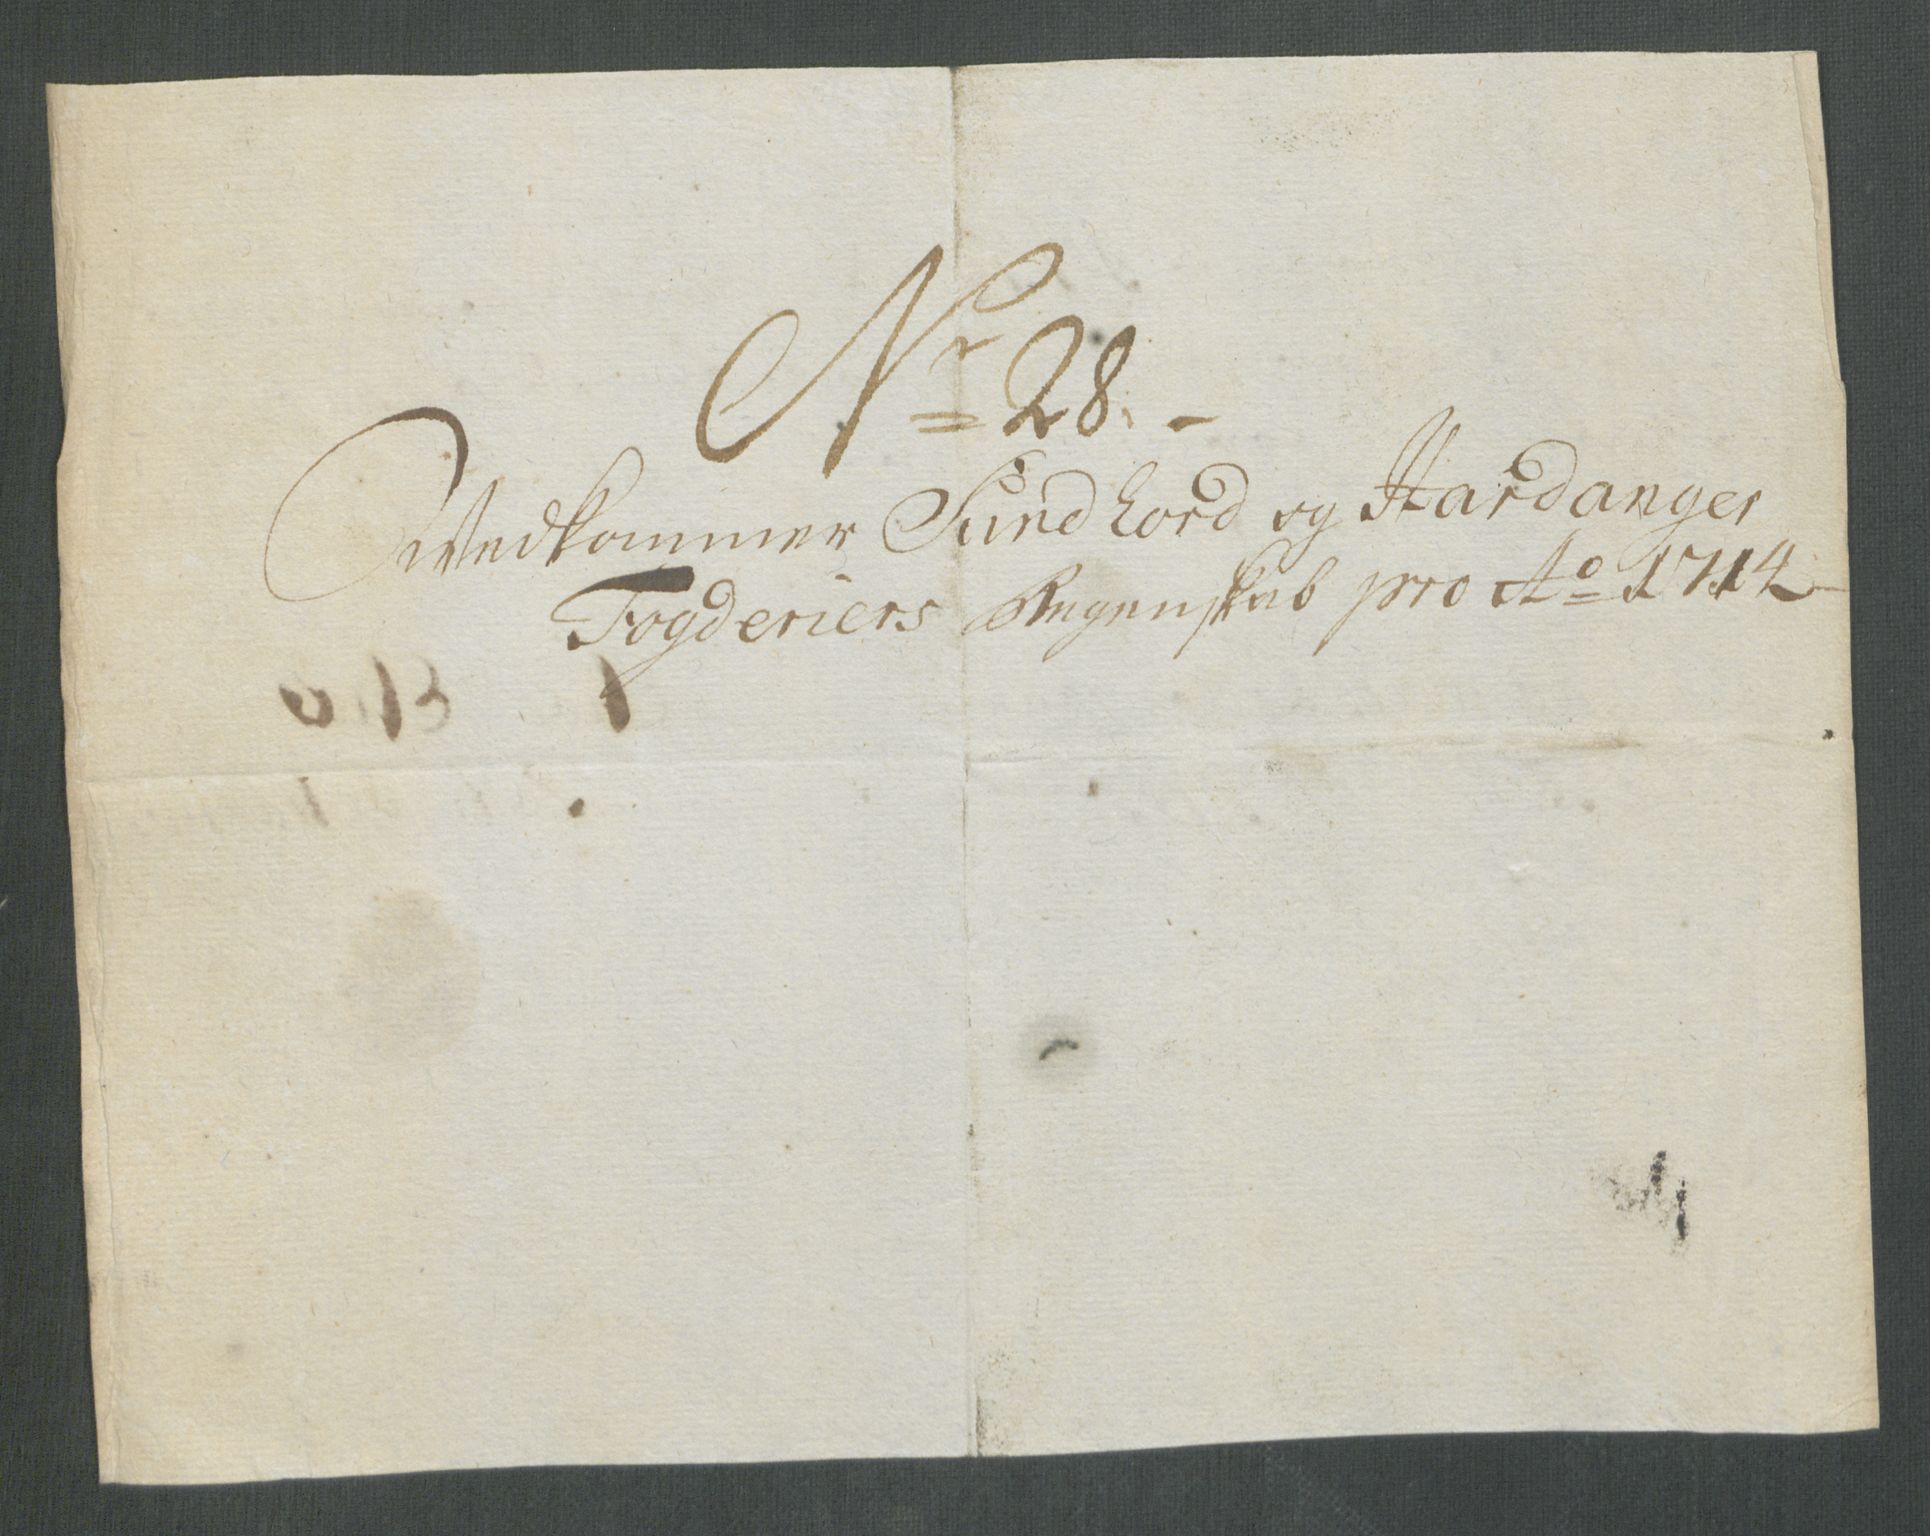 Nr 28.
Vedkommer Sundhord og Hardanger
Fogderiers Regenskab pro Ao 1714